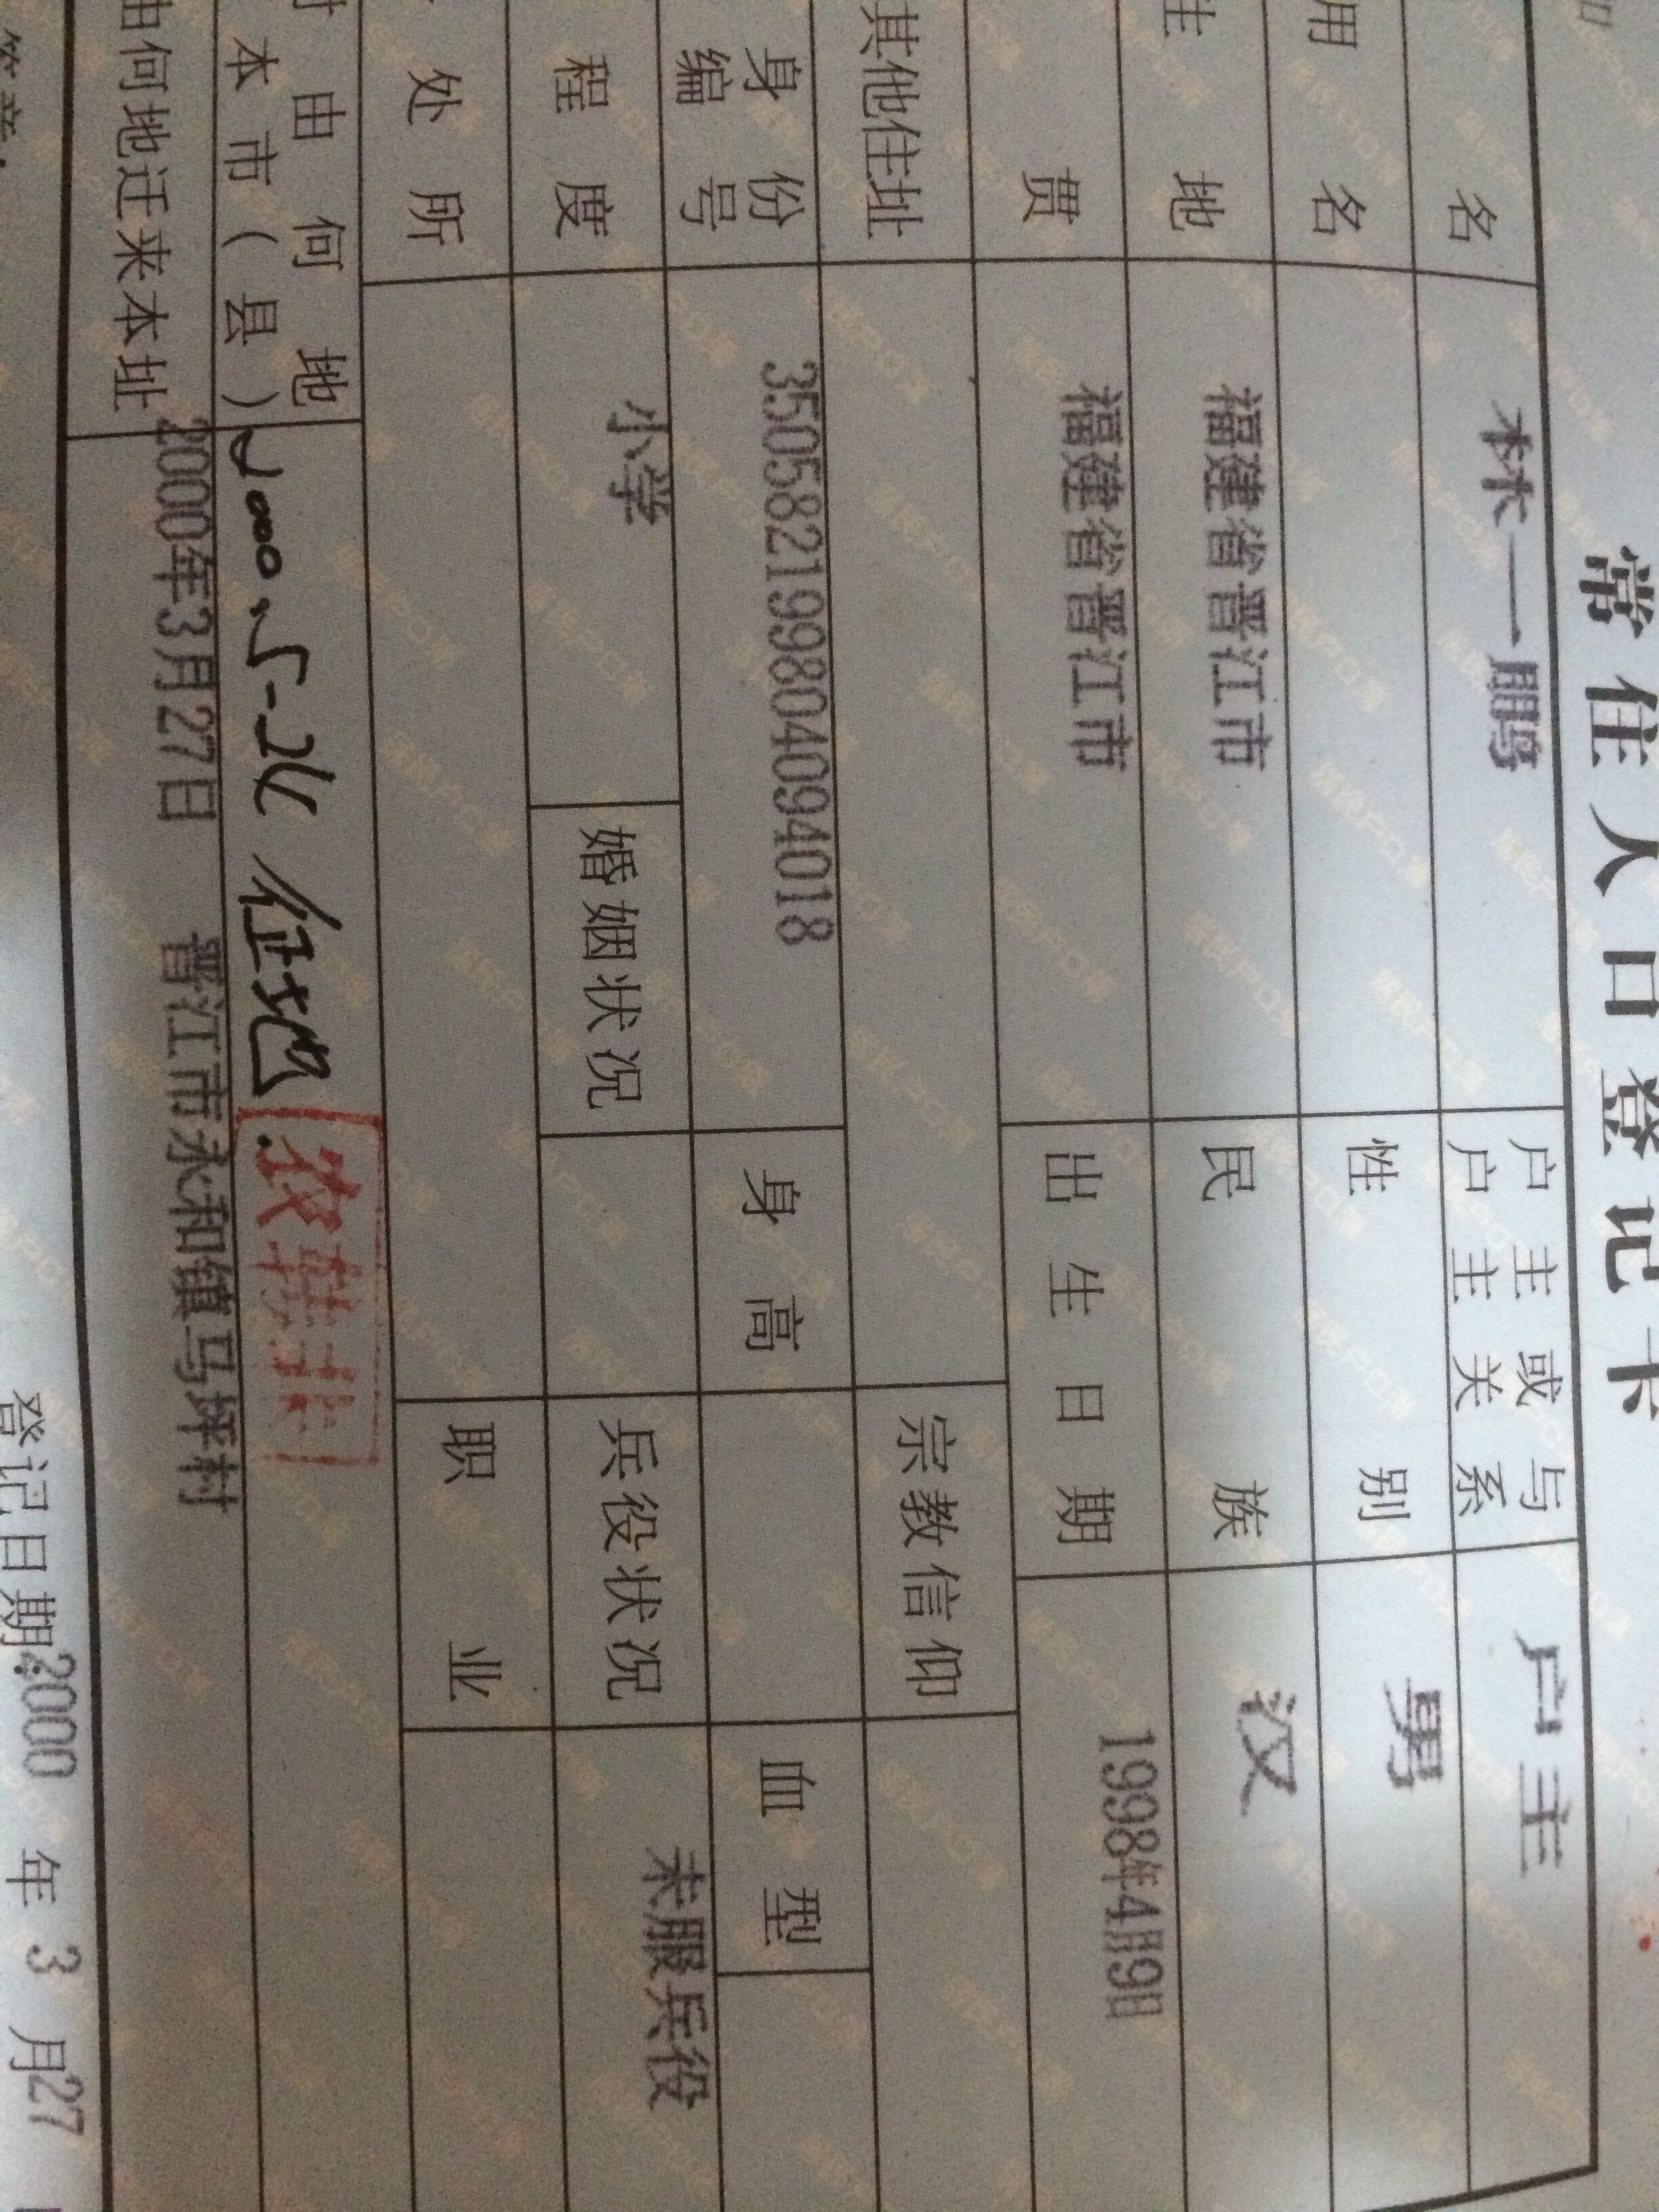 常住人口登记卡
名 林一鹏 户主或与户主关系 户主
用名 性别 男
生地 福建省晋江市 民族 汉
贯 福建省晋江市 出生日期 1998年4月9日
其他住址 宗教信仰
身份编号 350582199804094018 身高 血型
程度 小学 婚姻状况 兵役状况 未服兵役
处所 职业
由何地本市(县) 2000.5-24 征地 农转非
由何地迁来本址 2000年3月27日 晋江市永和镇马坪村
登记日期:2000年3月27